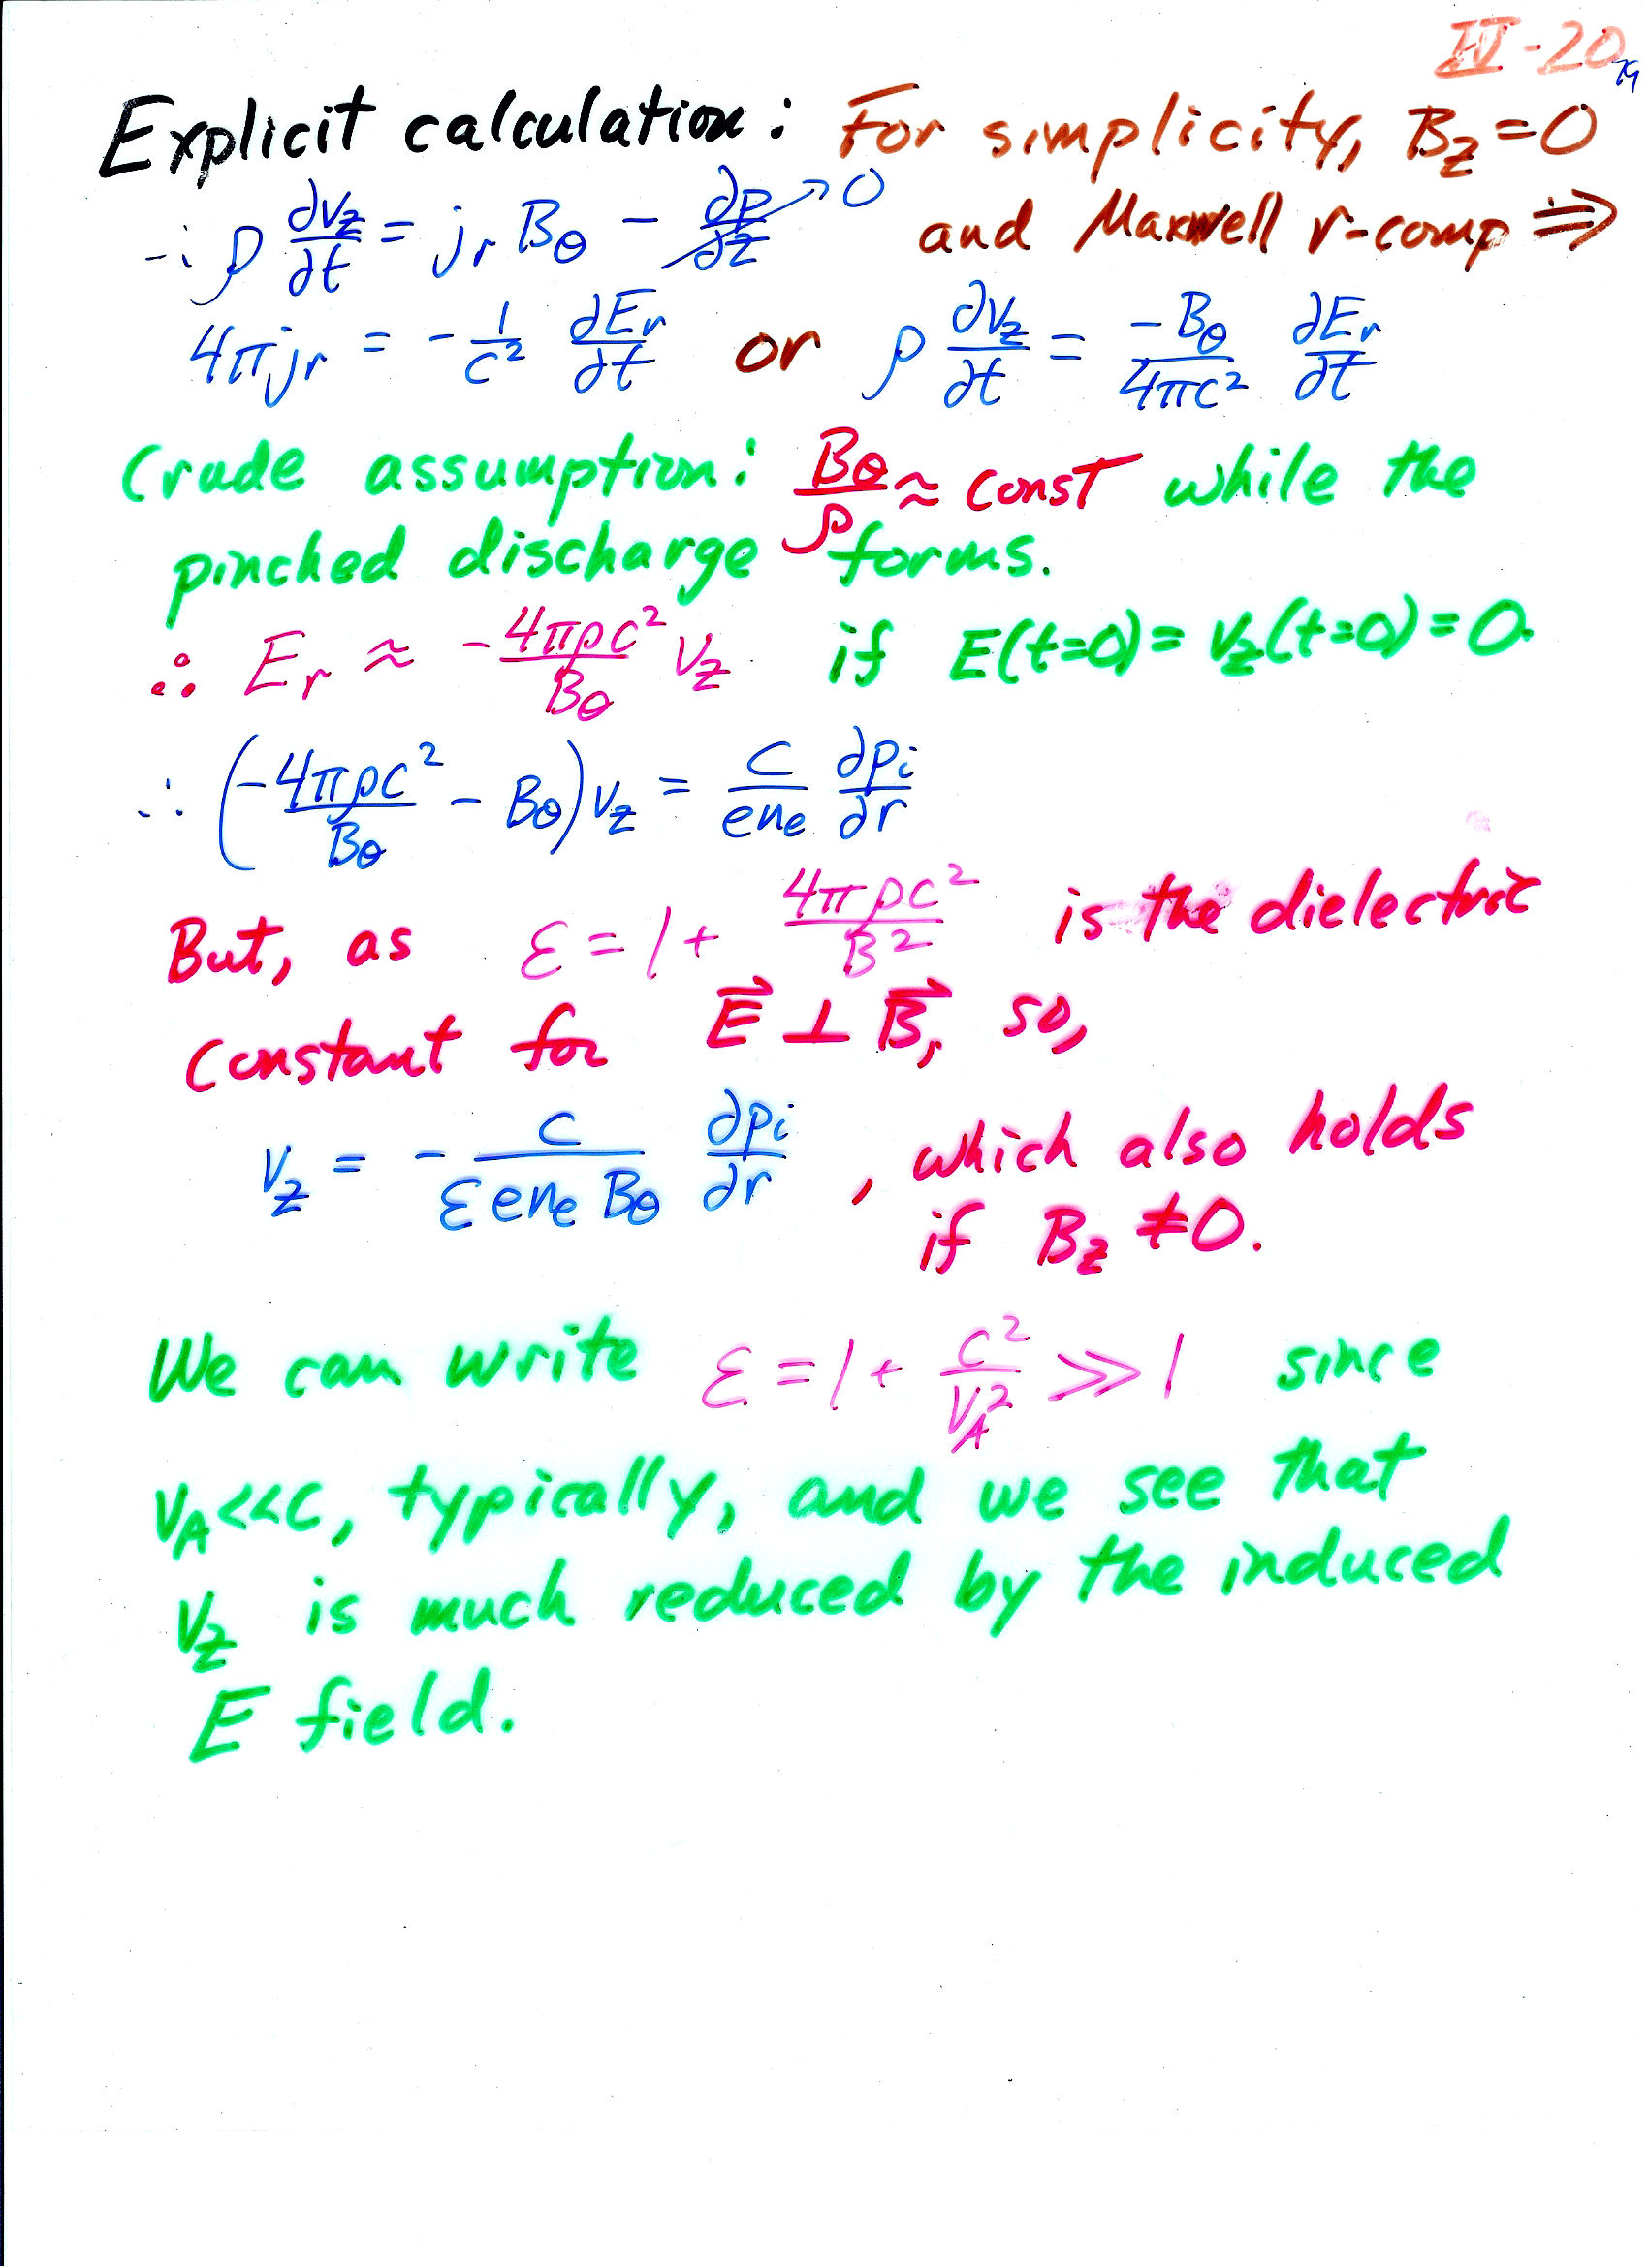 IV-20
19
Explicit calculation: For simplicity, B_z=0
∴ ρ ∂v_z/∂t = j_r B_θ - ∂p/∂z →0 and Maxwell r-comp ⇒
4πj_r = - 1/c² ∂E_r/∂t or ρ ∂v_z/∂t = -B_θ/4πc² ∂E_r/∂t
Crude assumption: B_θ/ρ ≈ const while the
pinched discharge forms.
∴ E_r ≈ - 4πρc²/B_θ v_z if E(t=0)= v_z(t=0)=0.
∴ (-4πρc²/B_θ - B_θ) v_z = c/en_e ∂p_i/∂r
But, as ε = 1 + 4πρc²/B² is the dielectric
constant for E⃗ ⊥ B⃗, so,
v_z = - c/ε en_e B_θ ∂p_i/∂r , which also holds
if B_z ≠ 0.
We can write ε = 1 + c²/V_A² >> 1 since
V_A<<c, typically, and we see that
v_z is much reduced by the induced
E field.